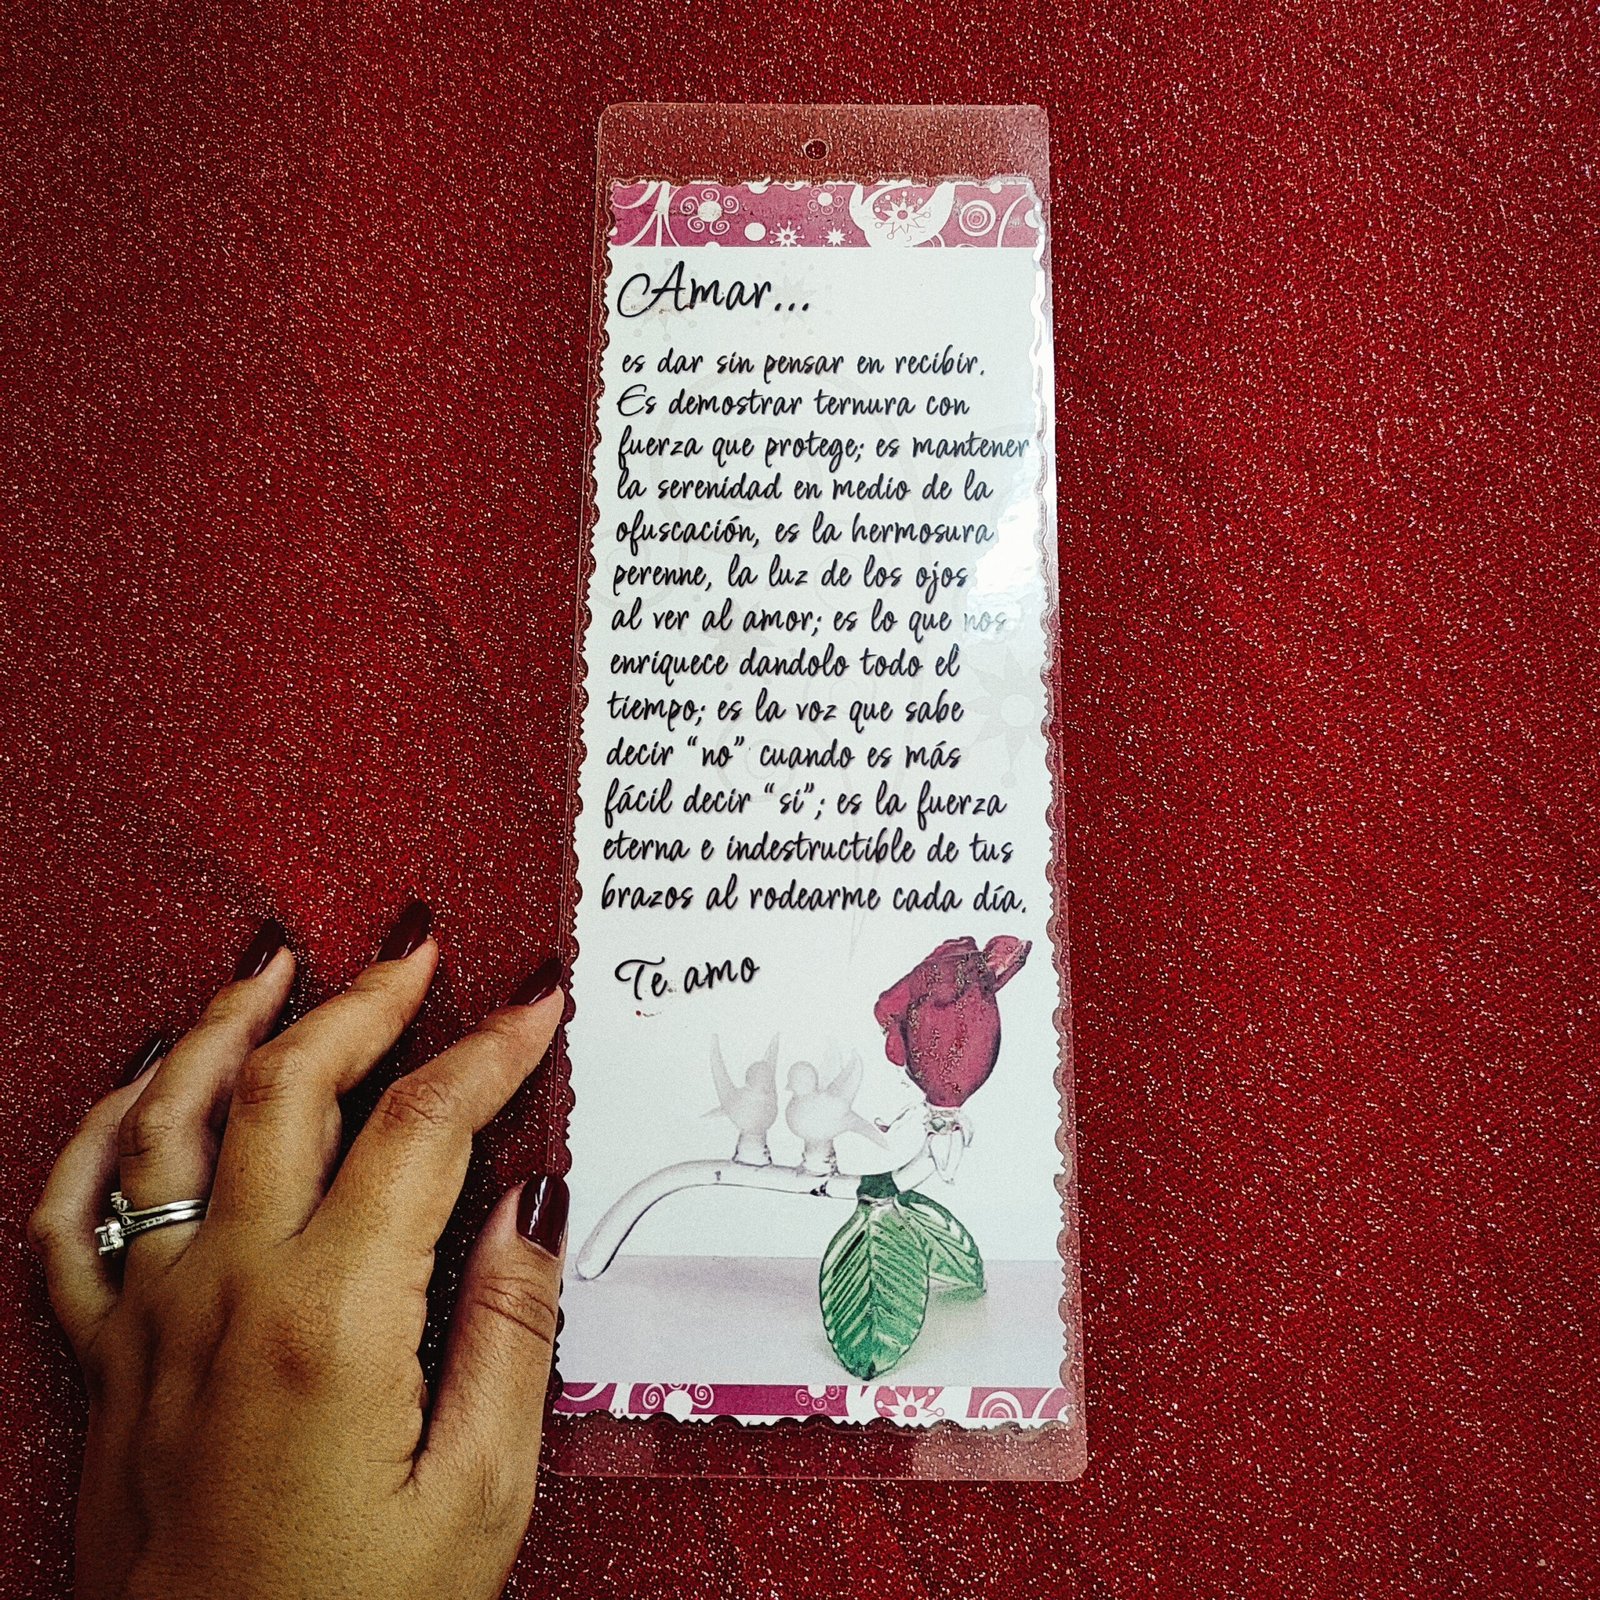 Amar...
es dar sin pensar en recibir.
Es demostrar ternura con
fuerza que protege; es mantener
la serenidad en medio de la
ofuscación, es la hermosura
perenne, la luz de los ojos
al ver al amor; es lo que nos
enriquece dandolo todo el
tiempo; es la voz que sabe
decir “no” cuando es más
fácil decir “si”; es la fuerza
eterna e indestructible de tus
brazos al rodearme cada día.
Te amo